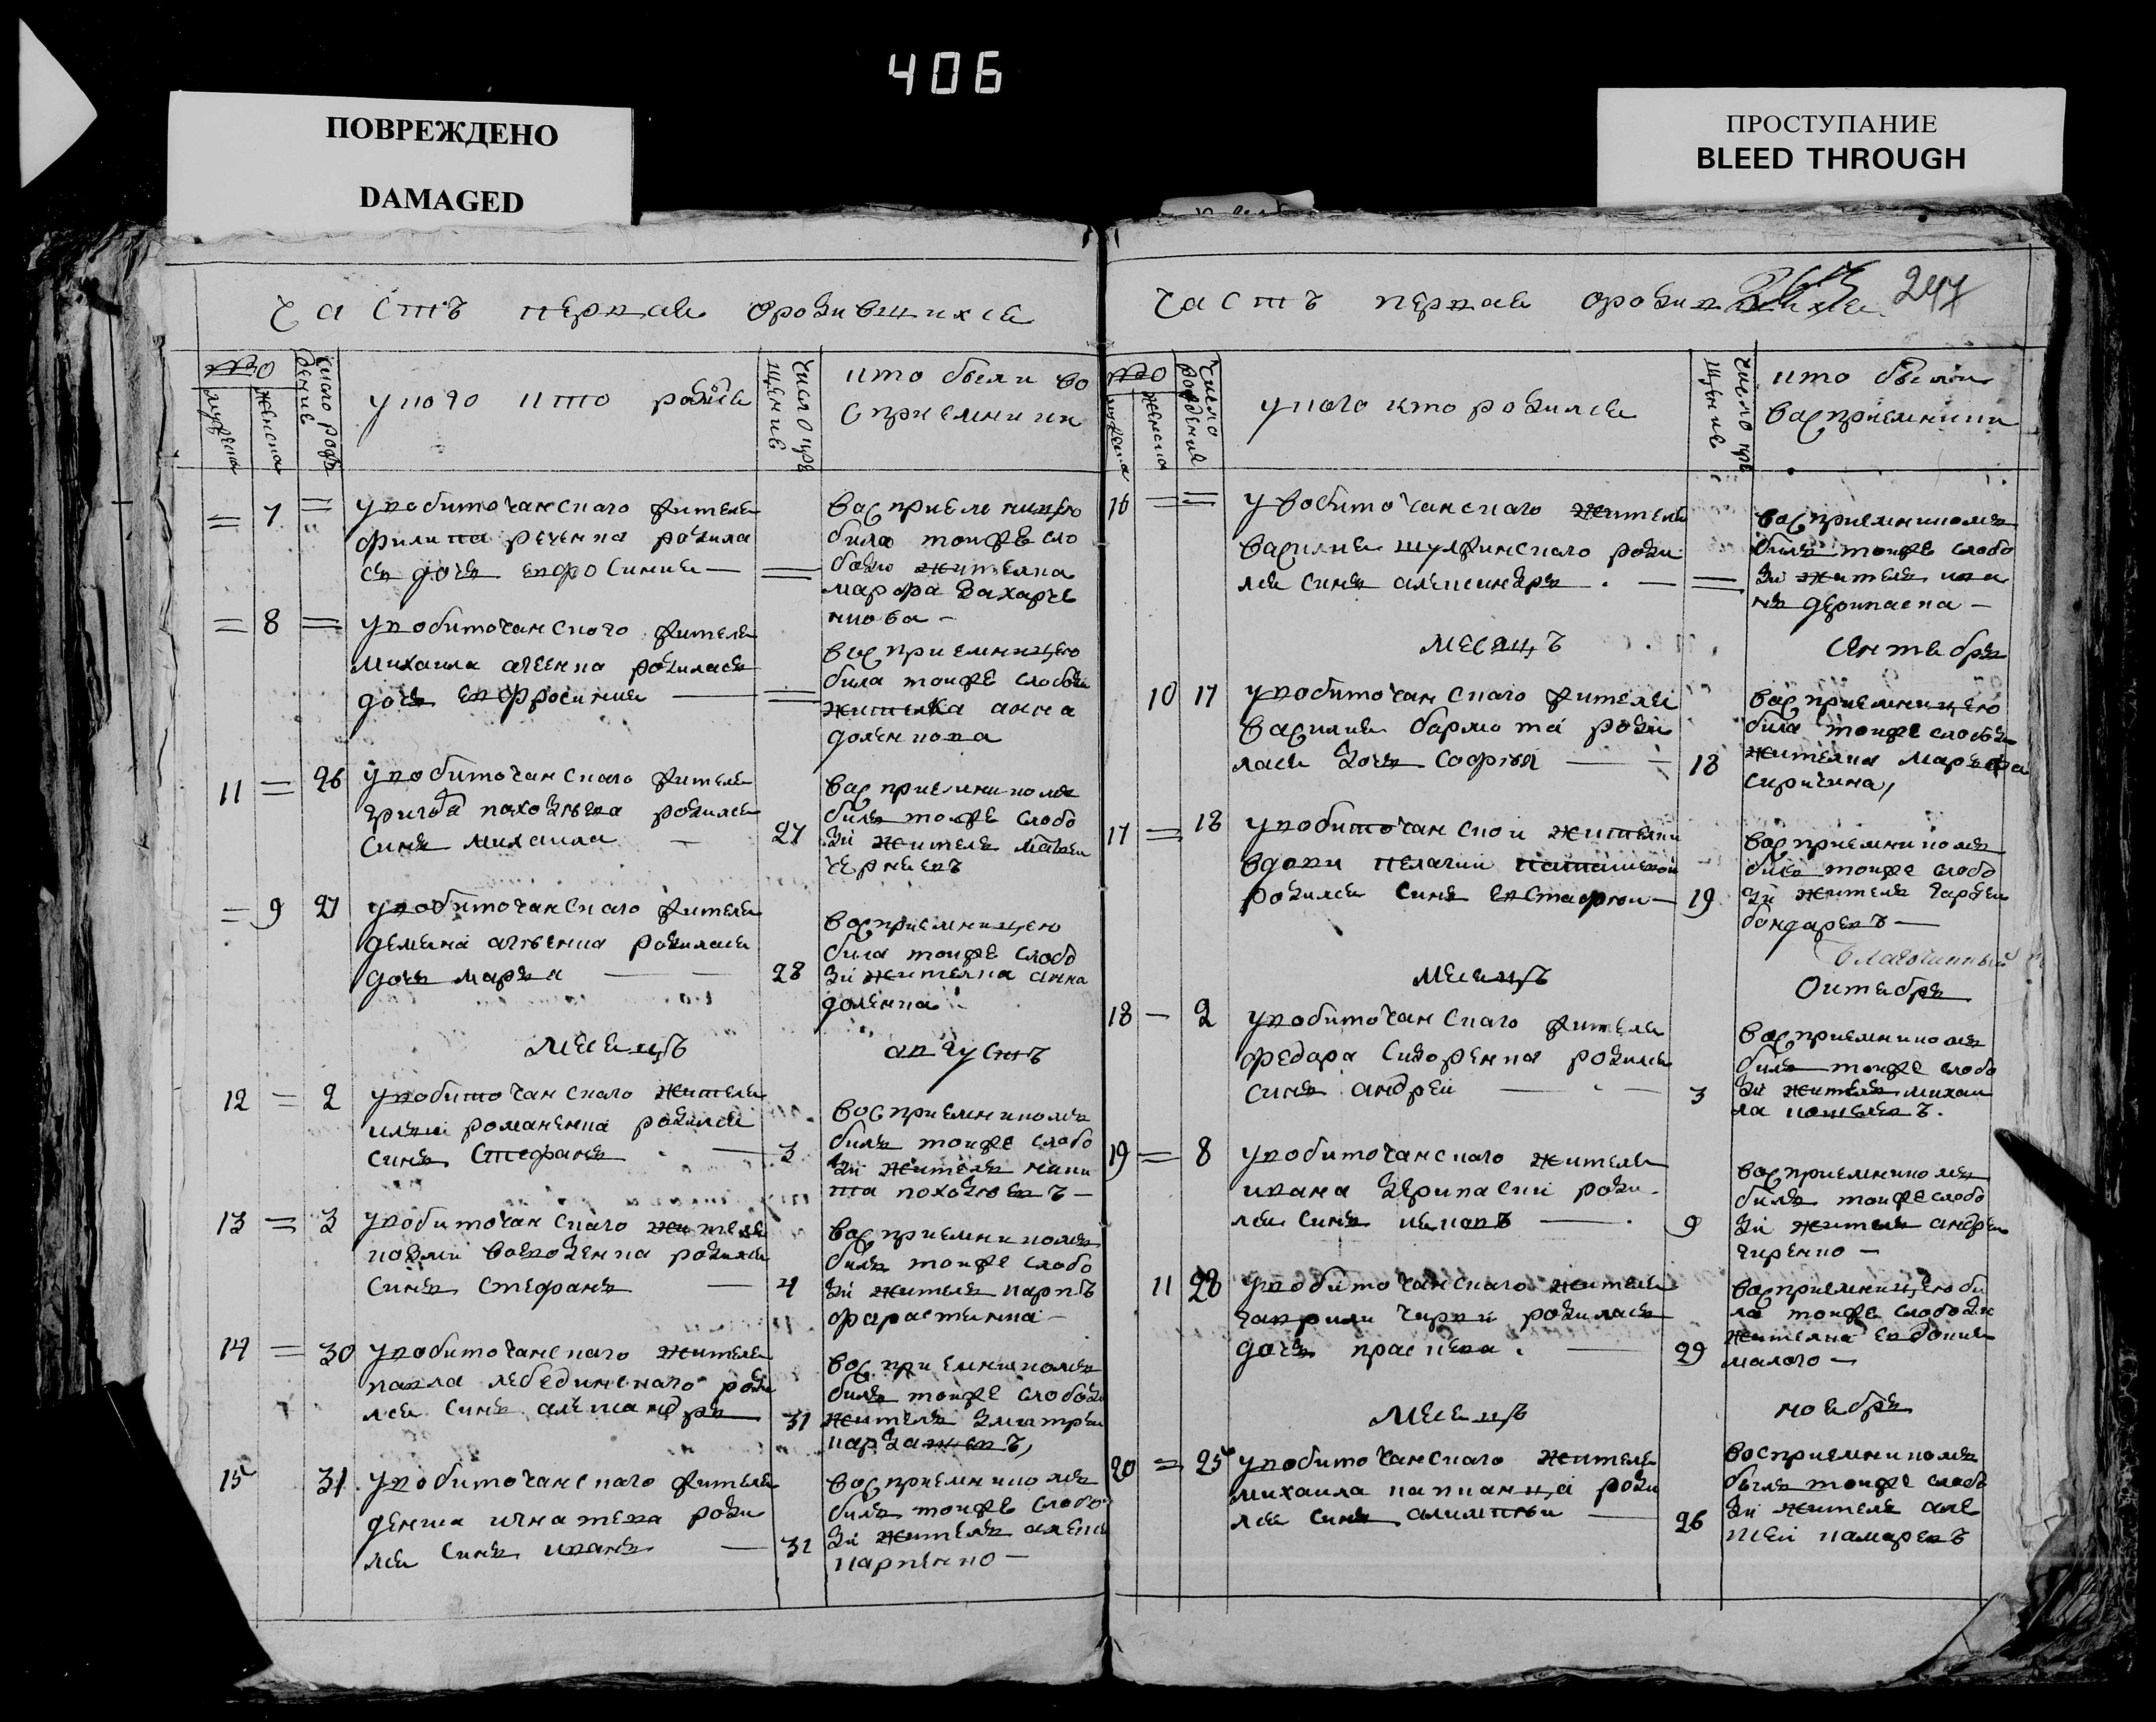 406
ПОВРЕЖДЕНО
DAMAGED
ПРОСТУПАНИЕ
BLEED THROUGH
247
Часть первая ородившихся
число рож
дения
мужеска
женска
у кого кто родился
число кре
щения
кто были во
сприемники
= 7 =
увобиточанскаго жителя
филипа реченка родила
ся дочь евфросиния —
восприемницею
била тоижъ сло
боди жителка
марфа Захарче
нкова —
= 8 =
увобиточанского жителя
михаила агеенка родилась
дочь евфросиния —
восприемницею
била тоиже слободи
жителка анна
доленкова
11 = 26
увобиточанскаго жителя
родился
синъ михаила —
27
восприемникомъ
билъ тоиже слобо
ди житель
чернеевъ
= 9 27
увобиточанскаго жителя
демяна агѣенка родилась
дочь марья —
28
восприемницею
била тоиже слобо
ди жителка анна
доленка
месецъ
августъ
12 = 2
увобиточанскаго жителя
илии романенка родился
синъ Стефанъ —
3
восприемникомъ
билъ тоиже слобо
ди житель ники
та походяевъ —
13 = 3
увобиточанскаго жителя
родился
синъ стефанъ —
4
восприемникомъ
билъ тоиже слобо
ди житель карпъ
14 = 30
увобиточанскаго жителя
павла лебединскаго роди
лся синъ александръ
31
восприемникомъ
билъ тоиже слободи
житель дмитреи
15 31
увобиточанскаго жителя
дениса игнатева роди
лся синъ иванъ —
31
восприемникомъ
билъ тоижъ слобо
ди житель алексе
карпенко —
Часть первая
мужеска
женска
число
рождения
у кого кто родился
число кре
щение
кто были
восприемники
16 = =
увобиточанскаго жителя
василия шулжинскаго роди
лся синъ александръ . —
восприемникомъ
билъ тоижъ слобо
ди житель ива
нъ дерипаска —
месяцъ
сентебря
10 17
увобиточанскаго жителя
василия бармота роди
лась дочь Софья —
18
восприемницею
била тоиже слободи
жителка марфа
сиричина,
17 = 18
увобиточанской жителки
вдови пелагии
родился синъ евстафеи —
19
восприемникомъ
билъ тоиже слобо
ди житель
бондаревъ —
Благочинный
месецъ
октебря
18 — 2
увобиточанскаго жителя
федара Сидоренка родился
синъ андреи —
3
восприемникомъ
билъ тоиже слобо
ди житель михаи
ла кошелевъ.
19 = 8
увобиточанскаго жителя
ивана дерипаски роди
лся синъ иековъ —
9
восприемникомъ
билъ тоиже слобо
ди житель андреи
чиренко —
11 28
увобиточанскаго жителя
гаврили родилась
дочь праскева . —
29
восприемницею би
ла тоиже слободи
жителка евдокия
малого —
месецъ
ноебря
20 = 25
увобиточанскаго жителя
михаила роди
лся синъ —
26
восприемникомъ
былъ тоиже слобо
ди житель але
ксеи камаревъ